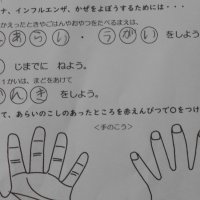 ナ、インフルエンザ、かぜをよぼうするためには・・・
かえったときやごはんやおやつをたべるまえは、
あらい・うがいをしよう
じまでに ねよう。
1かいは、まどをあけて
んきをしよう。
て、あらいのこしのあったところを赤えんぴつで○をつけ
<手のこう>